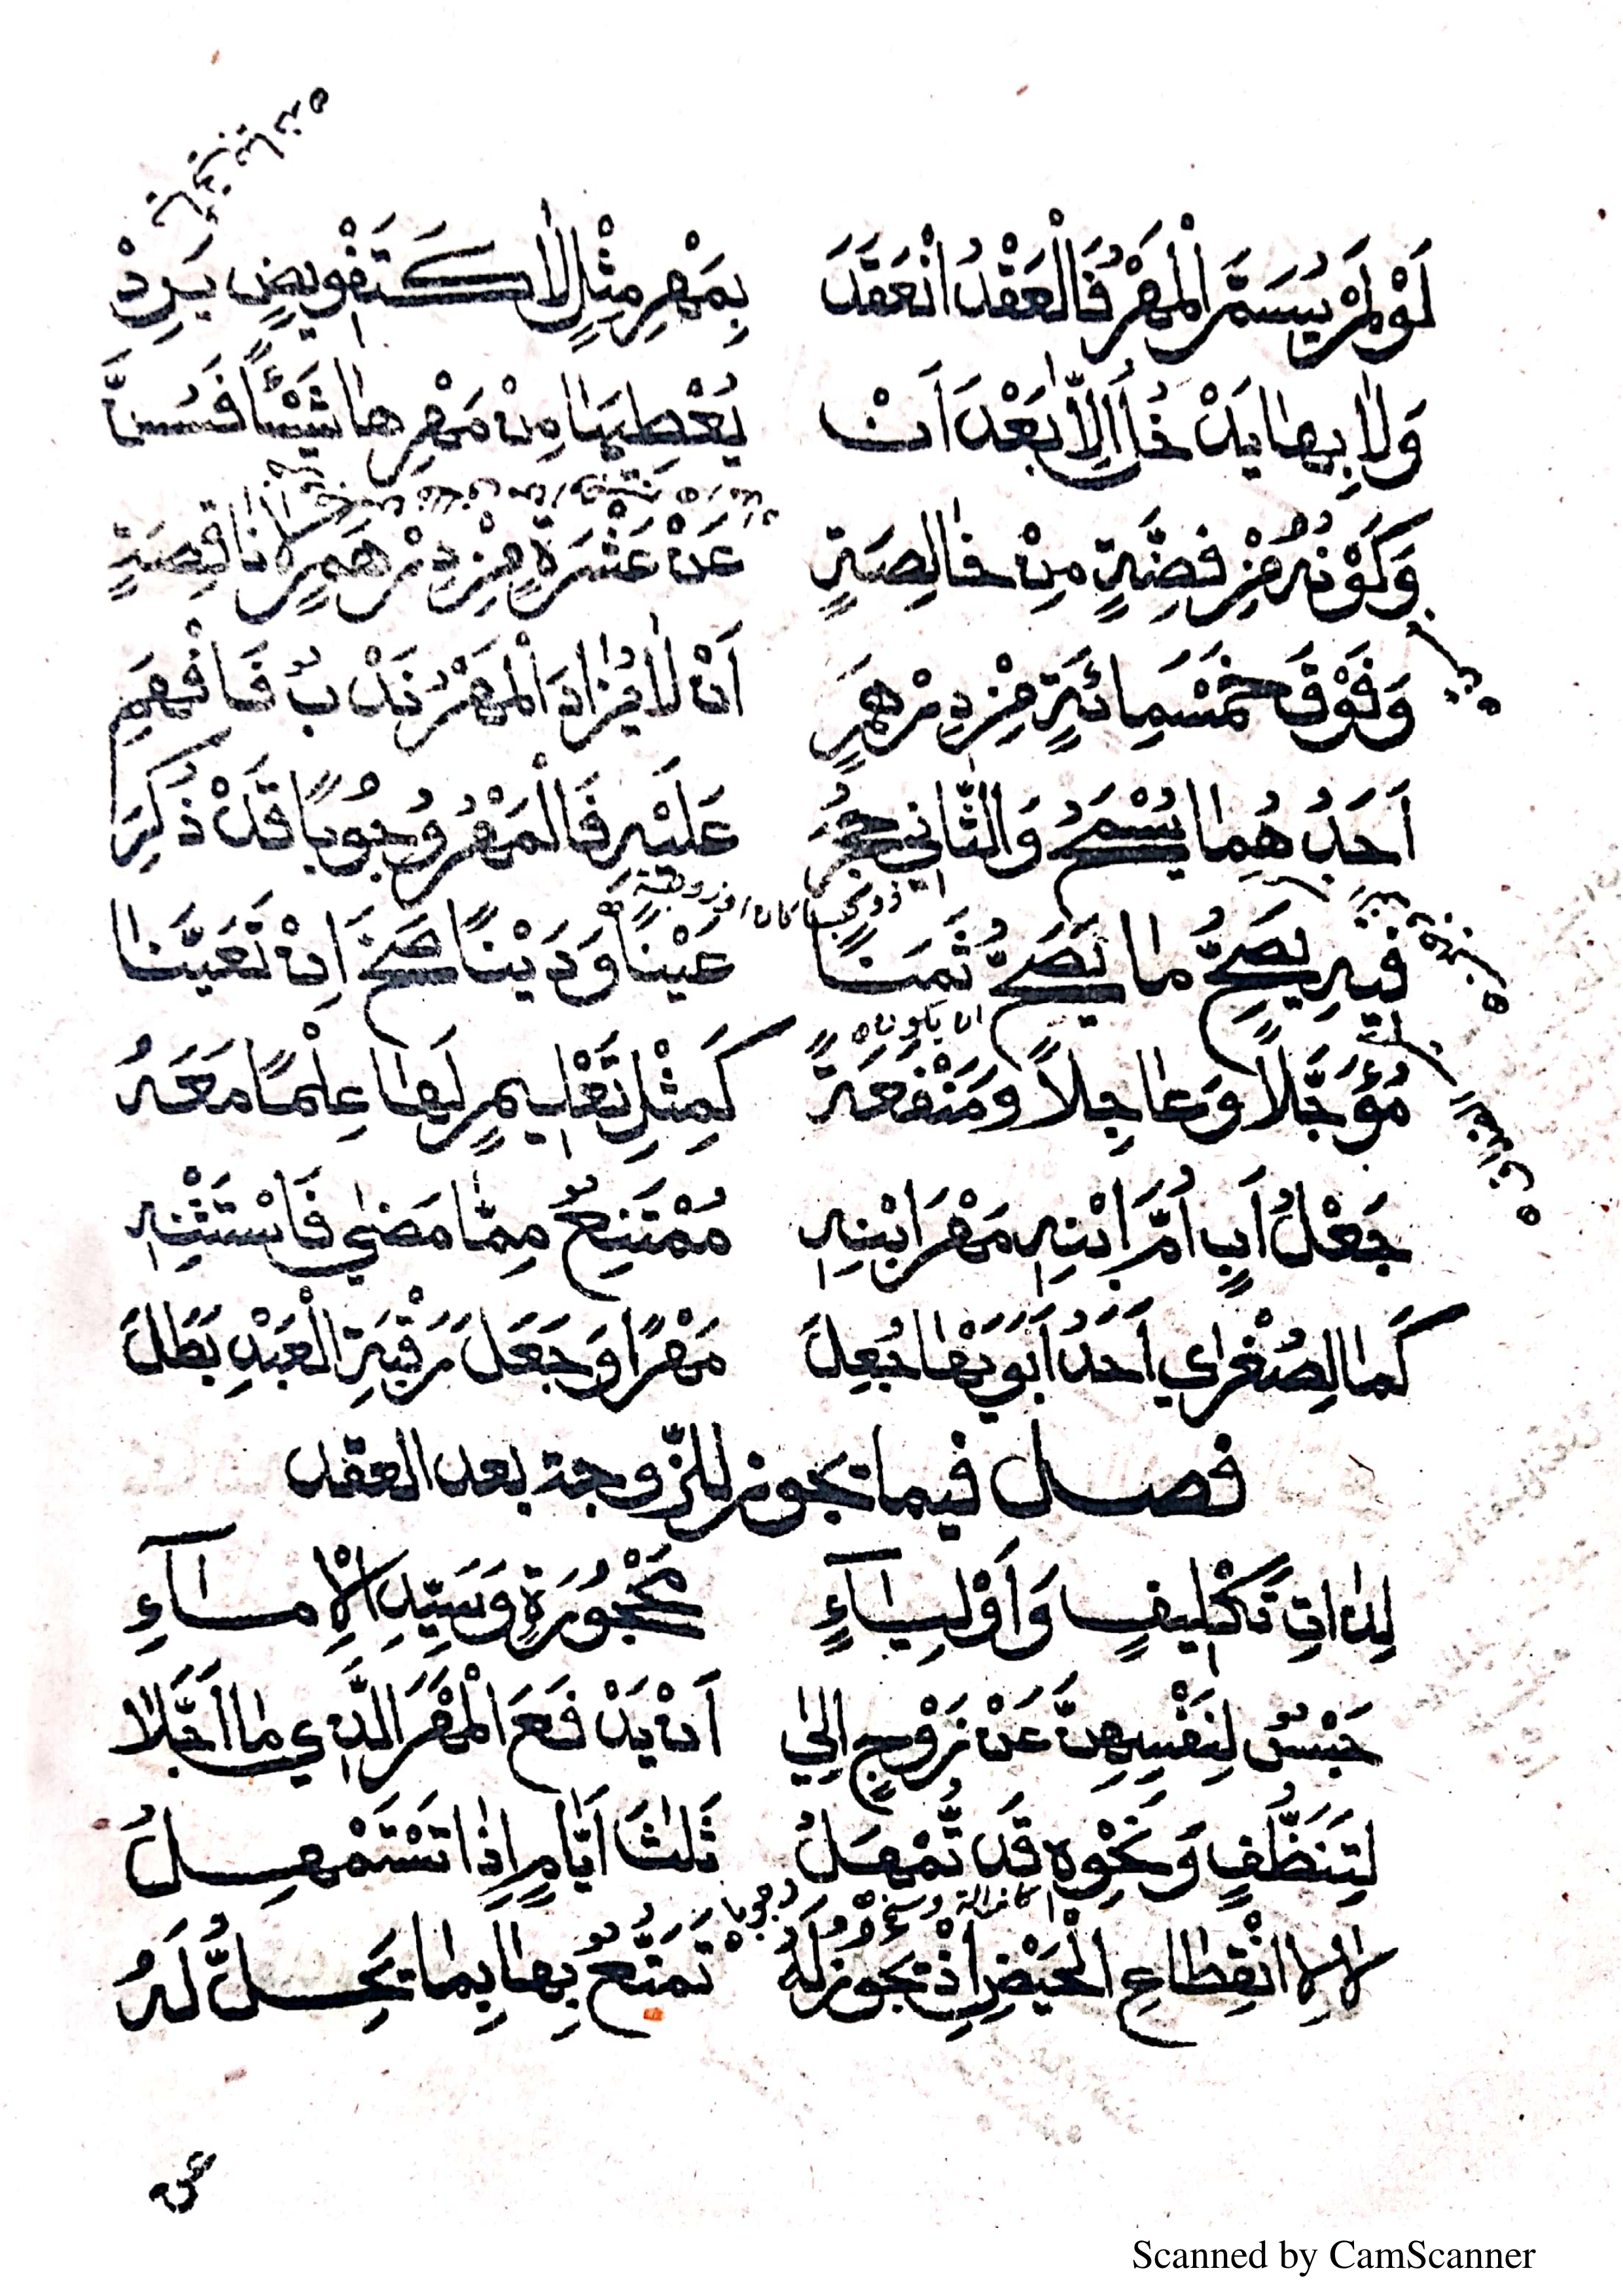 لَوْ لَمْ يُسَمَّ الْمَهْرُ فَالْعَقْدُ انْعَقَدَ بِمَهْرِ مِثْلٍ لَا كَتَفْوِيضٍ يَرِدْ
وَلَا بِهَا يَدْخُلُ إِلَّا بَعْدَ أَنْ يُعْطِيَهَا مِنْ مَهْرِهَا شَيْئًا فَسُنَّ
وَكَوْنُهُ مِنْ فِضَّةٍ مِنْ خَالِصَةٍ عَنْ عَشْرَةٍ مِنْ دِرْهَمٍ لَا نَاقِصَةٍ
وَفَوْقَ خَمْسَمِائَةٍ مِنْ دِرْهَمِ أَنْ لَا يُزَادَ الْمَهْرُ نَدْبٌ فَافْهَمِ
أَحَدُهُمَا يُسْمَحُ وَالثَّانِي حُجِرُ عَلَيْهِ فَالْمَهْرُ وُجُوبًا قَدْ ذُكِرَ
فِيهِ يَصِحُّ مَا يَصِحُّ ثَمَنًا عَيْنًا وَدَيْنًا صَحَّ إِنْ تَعَيَّنَا
مُؤَجَّلًا وَعَاجِلًا وَمَنْفَعَةً كَمِثْلِ تَعْلِيمٍ لَهَا عِلْمًا مَعَهُ
جَعْلُ أَبٍ أُمَّ ابْنِهِ مَهْرَ ابْنِهِ مُمْتَنِعٌ مِمَّا مَضَى فَاسْتَثْنِهِ
كَمَا لِصُغْرَايَ أَحَدُ أَبَوَيْهَا جُعِلَ مَهْرًا وَجَعَلَ رَقَبَةَ الْعَبْدِ بَطَلَ
فصل فيما يجوز للزّوجة بعد العقد
لِذَاتِ تَكْلِيفٍ وَأَوْلِيَاءٍ مَحْجُورَةٍ وَسَيِّدِ الْإِمَآءِ
حَبْسٌ لِنَفْسِهِنَّ عَنْ زَوْجٍ إِلَى أَنْ يَدْفَعَ الْمَهْرَ الَّذِي مَا أَجَّلَا
لِتَنَظُّفٍ وَنَحْوِهِ قَدْ تُمْهَلُ ثَلَاثَ أَيَّامٍ إِذَا تَسْتَمْهِلُ
لَا لِانْقِطَاعِ الْحَيْضِ إِذْ يَجُوزُ لَهُ تَمَتُّعٌ بِهَا بِمَا يَحِلُّ لَهُ
Scanned by CamScanner